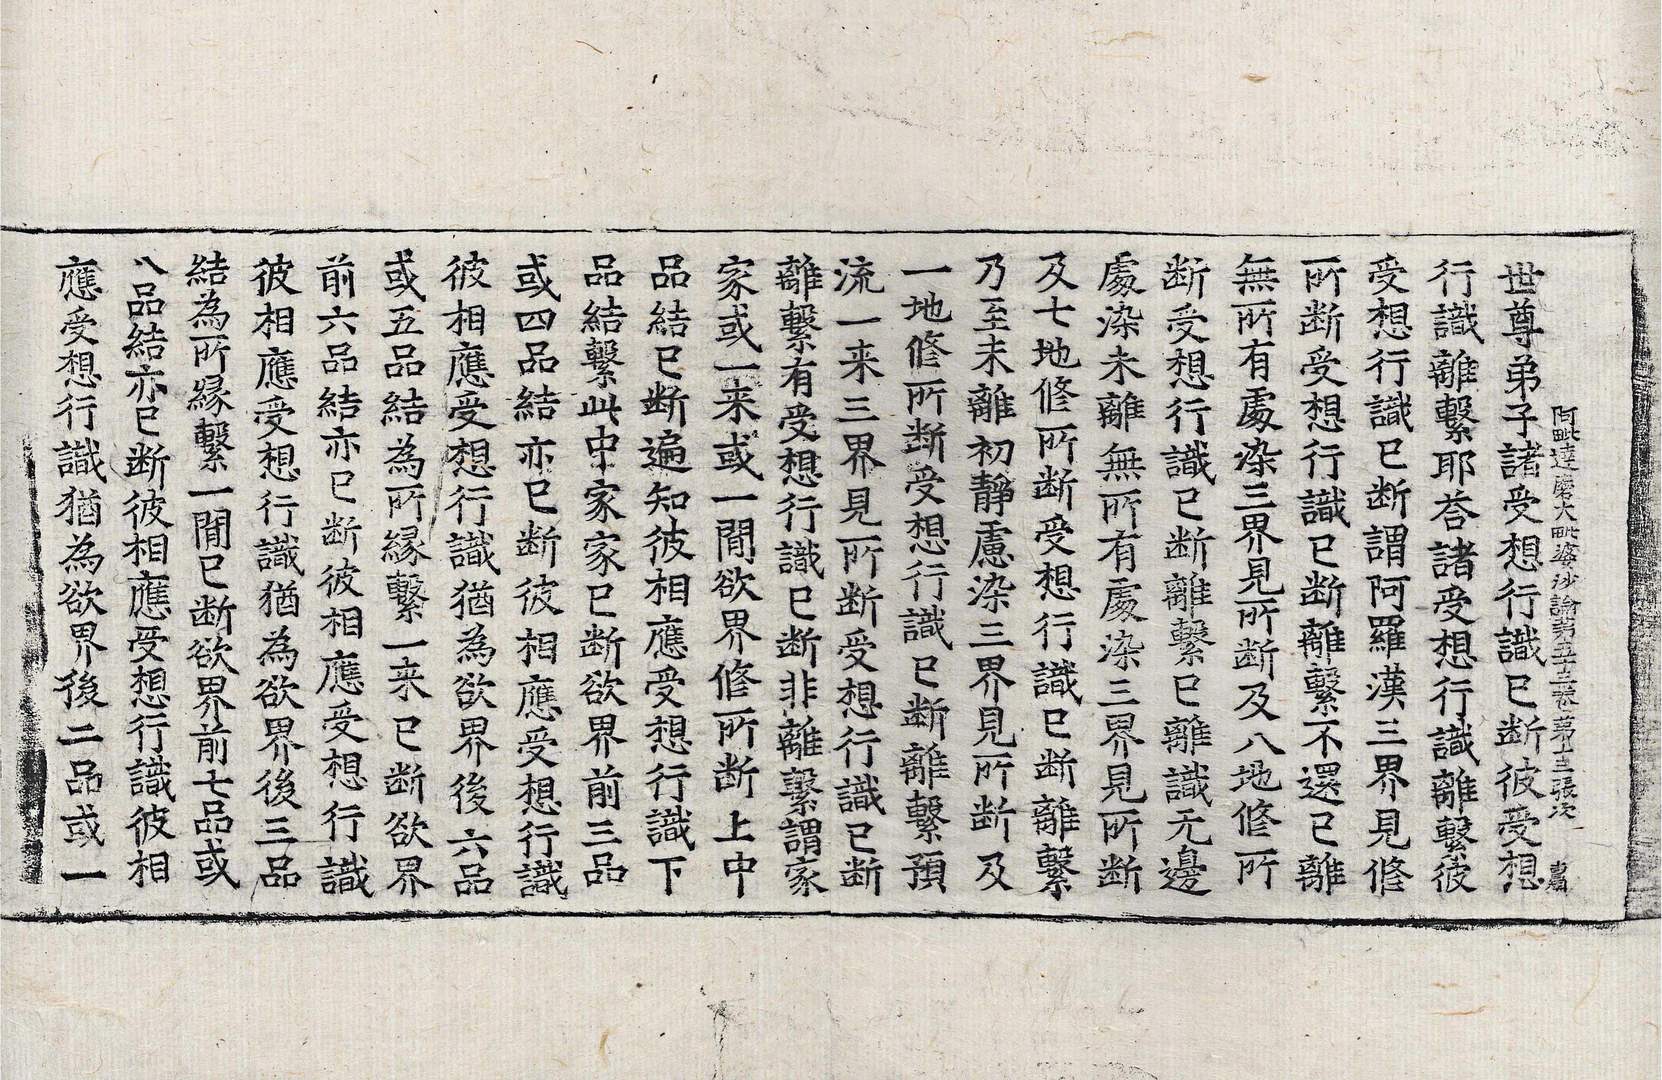 阿毗達磨大毗婆沙論第五十三卷 第十三張 次
世尊弟子諸受想行識已断彼受想
行識離繫耶荅諸受想行識離繫彼
受想行識已断謂阿羅漢三界見修
所断受想行識已断離繫不還已離
無所有處染三界見所断及八地修所
断受想行識已断離繫已離識无邊
處染未離無所有處染三界見所断
及七地修所断受想行識已断離繫
乃至未離初靜慮染三界見所断及
一地修所断受想行識已断離繫預
流一来三界見所断受想行識已断
離繫有受想行識已断非離繫謂家
家或一来或一間欲界修所断上中
品結已断遍知彼相應受想行識下
品結繫此中家家已断欲界前三品
或四品結亦已断彼相應受想行識
彼相應受想行識猶為欲界後六品
或五品結為所縁繫一来已断欲界
前六品結亦已断彼相應受想行識
彼相應受想行識猶為欲界後三品
結為所縁繫一間已断欲界前七品或
八品結亦已断彼相應受想行識彼相
應受想行識猶為欲界後二品或一